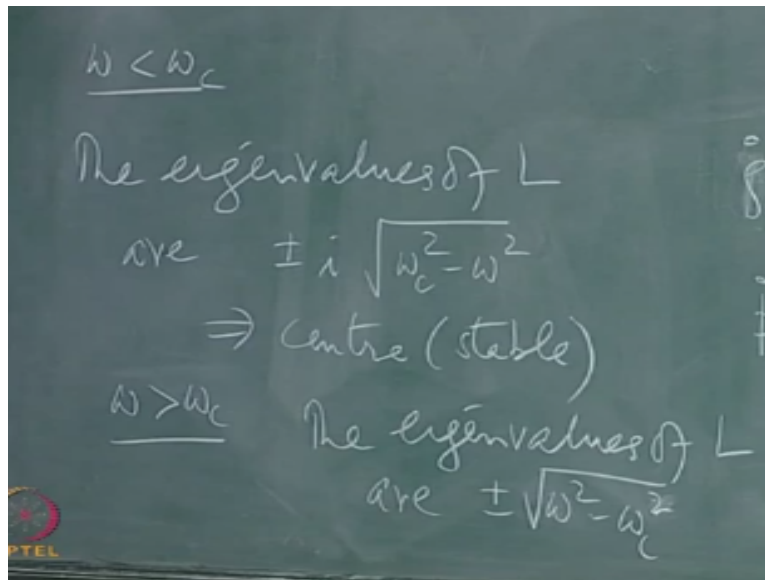 ω < ω_c
The eigenvalues of L
are ± i √(ω_c² - ω²)
⇒ centre (stable)
ω > ω_c The eigenvalues of L
are ± √(ω² - ω_c²)
PTEL